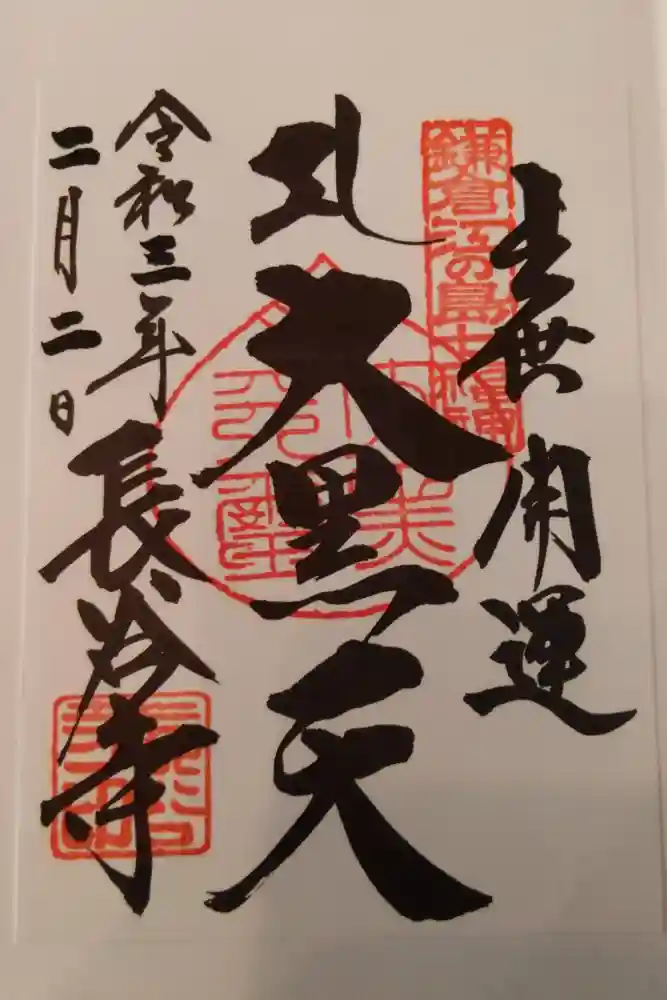 出世開運
鎌倉江の島七福神
大黒天
令和三年
二月二日
長谷寺